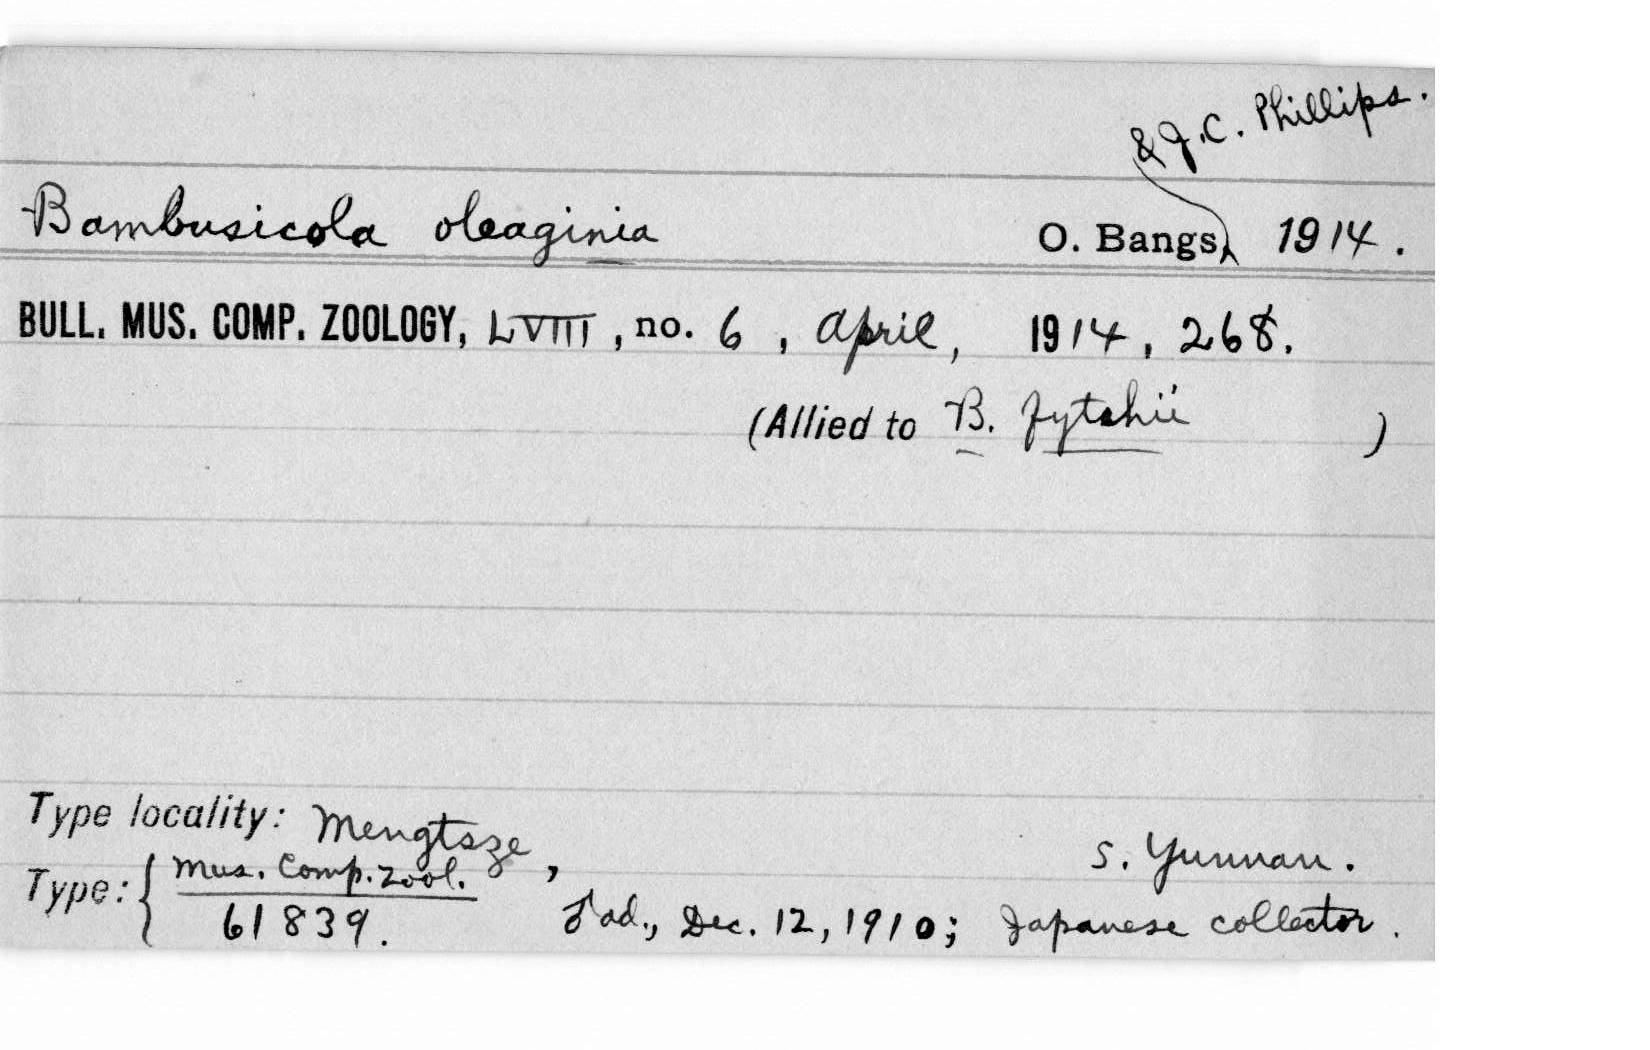 & J. C. Phillips.
Bambusicola oleaginia O. Bangs, 1914.
BULL. MUS. COMP. ZOOLOGY, LVIII, no. 6, April, 1914, 268.
(Allied to B. fytchii )
Type locality: Mengtsze, S. Yunnan.
Type: { Mus. Comp. Zool.
61839. ♂ ad., Dec. 12, 1910; Japanese collector.